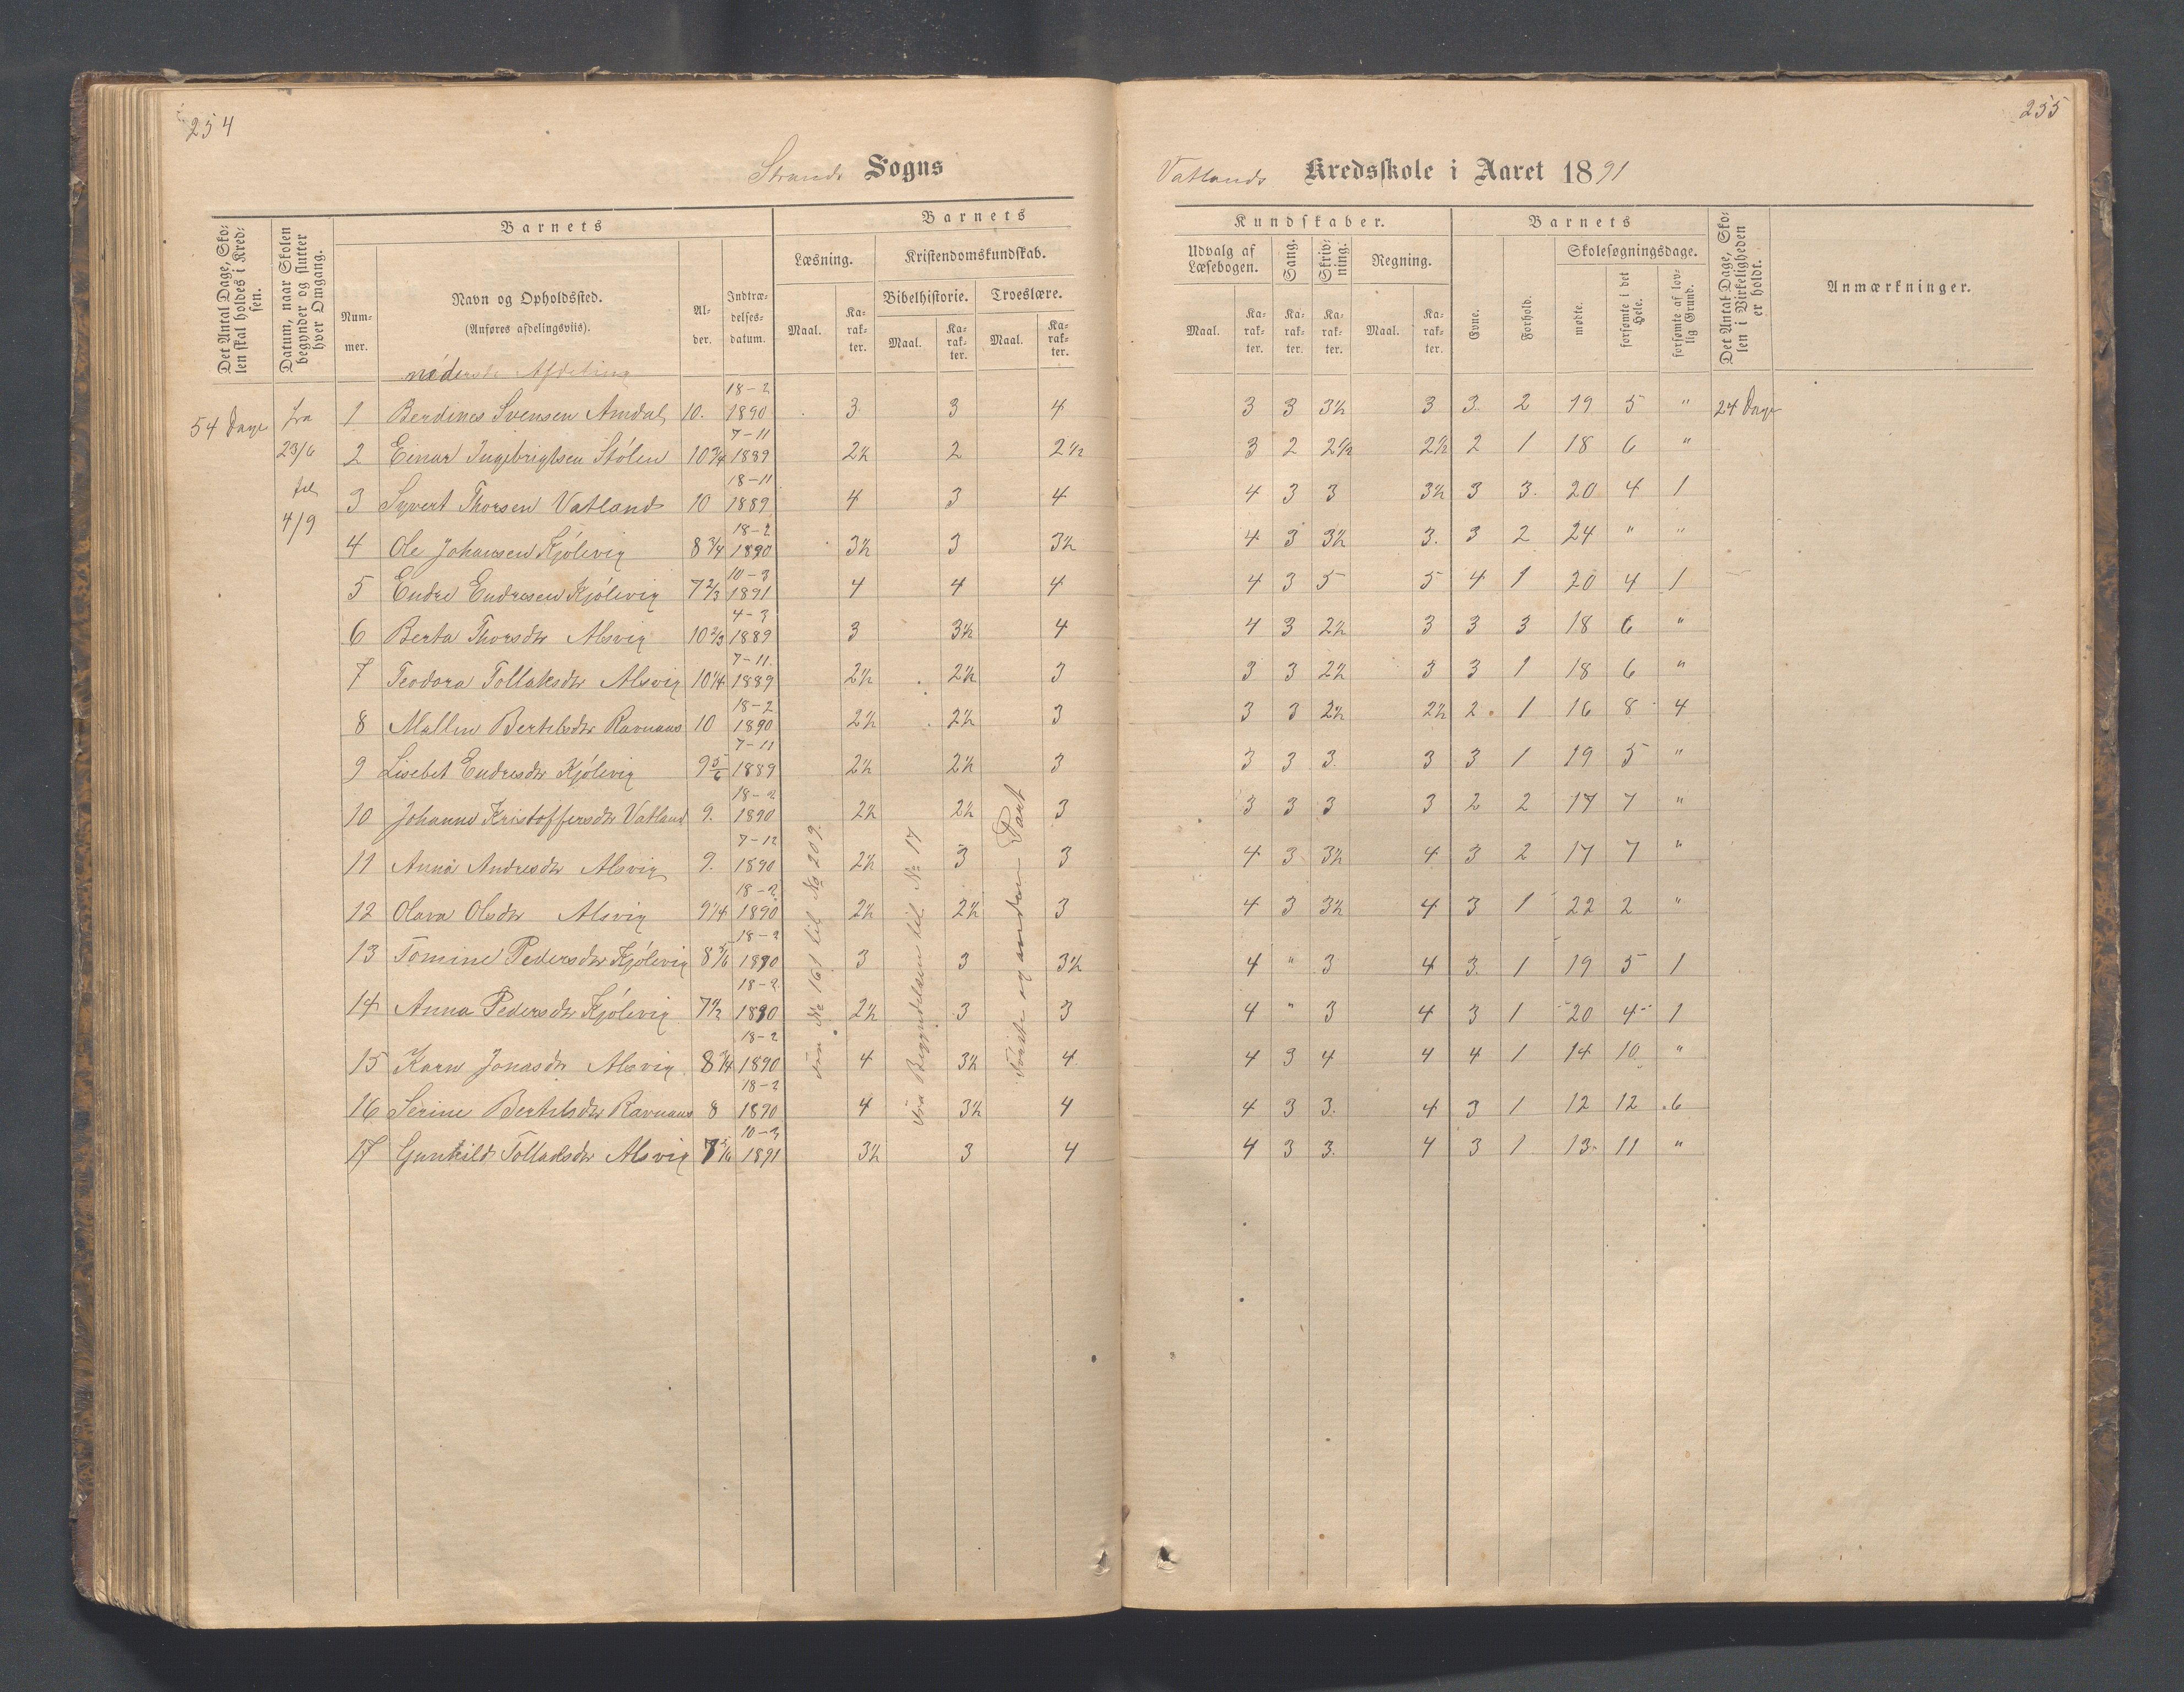 254
255
Strands Sogns
Vatlands Kredsskole i Aaret 1891
Det Antal Dage, Skolen skal holdes i Kredsen.
Datum, naar Skolen begynder og slutter hver Omgang.
Barnets
Nummer.
Navn og Opholdssted.
(Anføres afdelingsviis).
Alder.
Indtrædelsesdatum.
Barnets
Læsning.
Kristendomskundskab.
Bibelhistorie.
Troeslære.
Maal.
Karakter.
Maal.
Karakter.
Maal.
Karakter.
Kundskaber.
Udvalg af Læsebogen.
Sang.
Skrivning.
Regning.
Maal.
Karakter.
Karakter.
Karakter.
Maal.
Karakter.
Barnets
Evne.
Forhold.
Skolesøgningsdage.
mødte.
forsømte i det Hele.
forsømte af lovlig Grund.
Det Antal Dage, Skolen i Virkeligheden er holdt.
Anmærkninger.
nederste Afdeling
54 Dage fra 23/6 til 4/9
24 Dage
1 Berdines Svensen Amdal 10. 18-2 1890 3 3 4 3 3 3½ 3 3 2 19 5 "
2 Einar Ingebrigtsen Stölen 10¾ 7-11 1889 2½ 2 2½ 3 2 2½ 2½ 2 1 18 6 "
3 Syvert Thorsen Vatland 10 18-11 1889 4 3 4 4 3 3 3½ 3 3. 20 4 1
4 Ole Johansen Kjölevig 8¾ 18-2 1890 3½ 3 3½ 4 3 3½ 3. 3 2 24 " "
5 Endre Endresen Kjölevig 7⅔ 10-3 1891 4 4 4 4 3 5 5 4 1 20 4 1
6 Berta Thorsdtr Alsvig 10⅔ 4-3 1889 3 3½ 4 4 3 2½ 3 3 3 18 6 "
7 Teodora Tollaksdtr Alsvig 10¼ 7-11. 1889 2½ 2½ 3 3 3 2½ 3 3 1 18 6 "
8 Mallin Bertilsdtr Ravnaas 10 18-2 1890 2½ 2½ 3 3 3 2½ 2½ 2 1 16 8 4
9 Lisebet Endresdtr Kjölevig 9 5/6 7-11 1889 2½ 2½ 3 3 3 3. 3 3 1 19 5 "
10 Johanne Kristoffersdtr Vatland 9. 18-2 1890 2½ 2½ 3 3 3 3 3 2 2 17 7 "
11 Anna Andresdtr Alsvig 9. 7-12 1890 2½ 3 3 4 3 3½ 4 3 2 17 7 "
12 Olava Olsdtr Alsvig 9¼ 18-2 1890 2½ 2½ 3 4 3 3½ 4 3 1 22 2 "
13 Tomine Pedersdtr Kjölevig 8 5/6 18-2 1890 3 3 3½ 4 " 3 4 3 1 19 5 1
14 Anna Pedersdtr Kjölevig 7½ 18-2 1890 2½ 3 3 4 " 3 4 3 1 20 4 1
15 Karen Jonasdtr Alsvig 8¾ 18-2 1890 4 3½ 4 4 3 4 4 4 1 14 10 "
16 Serine Bertilsdtr Ravnaas 8 18-2 1890 4 3½ 4 4 3 3. 4 3 1 12 12 6
17 Gunhild Tollaksdtr Alsvig 7 5/6 10-3 1891 3½ 3 4 4 3 3. 4 3 1 13 11 "
Fra № 161 til № 209.
Fra Begyndelsen til № 17
Förste og anden Part